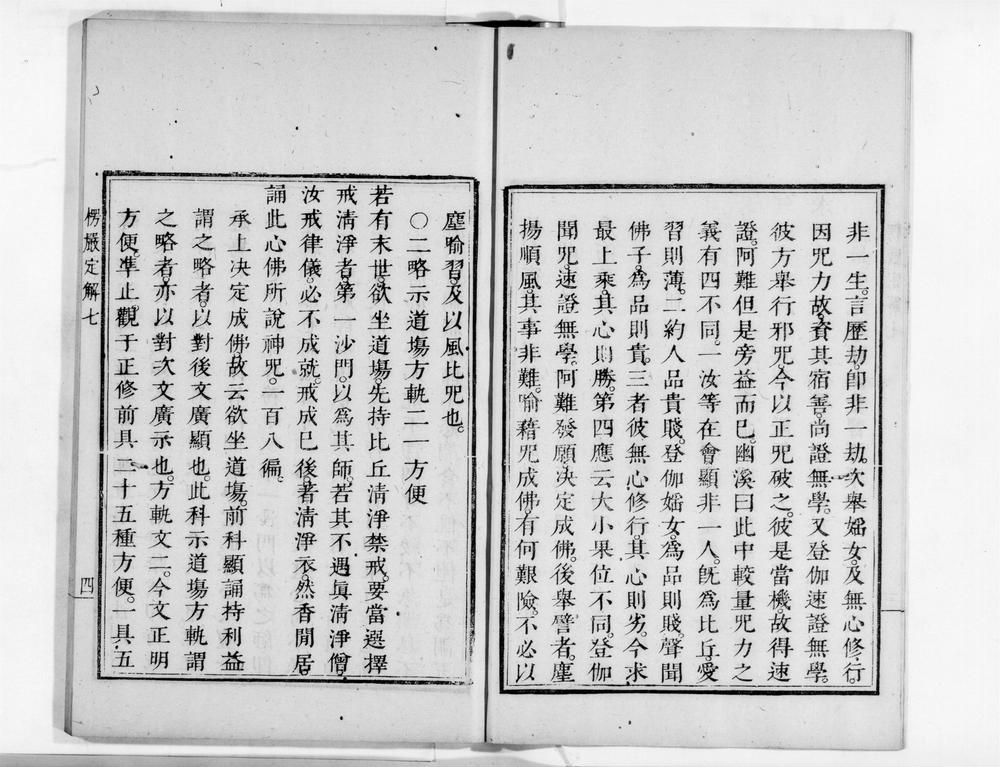 非一生。言歷劫。卽非一劫。次舉婬女。及無心修行。
因咒力故。資其宿善。尚證無學。又登伽速證無學。
彼方舉行邪咒。今以正咒破之。彼是當機。故得速
證。阿難但是旁益而已。幽溪曰此中較量咒力之
義有四不同。一汝等在會顯非一人。旣爲比丘。愛
習則薄。二約人品貴賤。登伽婬女。爲品則賤。聲聞
佛子。爲品則貴。三者彼無心修行。其心則劣。今求
最上乘。其心則勝。第四應云大小果位不同。登伽
聞咒。速證無學。阿難發願。决定成佛。後舉譬者。塵
揚順風。其事非難。喻藉咒成佛。有何艱險。不必以
塵喻習。及以風比咒也。
〇二略示道場方軌二一方便
若有末世。欲坐道場。先持比丘清淨禁戒。要當選擇
戒清淨者。第一沙門。以爲其師。若其不遇眞清淨僧。
汝戒律儀。必不成就。戒成已後。著清淨衣。然香閒居
誦此心佛所說神咒。一百八徧。
承上决定成佛。故云欲坐道場。前科顯誦持利益
謂之略者。以對後文廣顯也。此科示道場方軌。謂
之略者。亦以對次文廣示也。方軌文二。今文正明
方便。準止觀于正修前具二十五種方便。一具五
楞嚴定解七
四